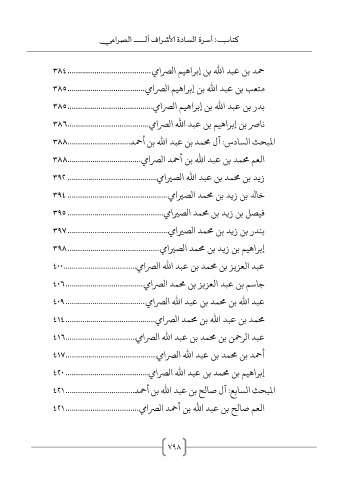 كتاب: أسرة السادة الأشراف آل الصرامي
حمد بن عبد الله بن إبراهيم الصرامي ................ ٣٨٤
متعب بن عبد الله بن إبراهيم الصرامي ................ ٣٨٥
بدر بن عبد الله بن إبراهيم الصرامي ................ ٣٨٥
ناصر بن إبراهيم بن عبد الله الصرامي ................ ٣٨٦
المبحث السادس: آل محمد بن عبد الله بن أحمد ................ ٣٨٨
العم محمد بن عبد الله بن أحمد الصرامي ................ ٣٨٨
زيد بن محمد بن عبد الله الصيرامي ................ ٣٩٢
خالد بن زيد بن محمد الصيرامي ................ ٣٩٤
فيصل بن زيد بن محمد الصيرامي ................ ٣٩٥
بندر بن زيد بن محمد الصيرامي ................ ٣٩٧
إبراهيم بن زيد بن محمد الصيرامي ................ ٣٩٨
عبد العزيز بن محمد بن عبد الله الصرامي ................ ٤٠٠
جاسم بن عبد العزيز بن محمد الصرامي ................ ٤٠٦
عبد الله بن محمد بن عبد الله الصرامي ................ ٤٠٩
محمد بن عبد الله بن محمد الصرامي ................ ٤١٤
عبد الرحمن بن محمد بن عبد الله الصرامي ................ ٤١٦
أحمد بن محمد بن عبد الله الصرامي ................ ٤١٧
إبراهيم بن محمد بن عبد الله الصرامي ................ ٤٢٠
المبحث السابع: آل صالح بن عبد الله بن أحمد ................ ٤٢١
العم صالح بن عبد الله بن أحمد الصرامي ................ ٤٢١
٧٩٨